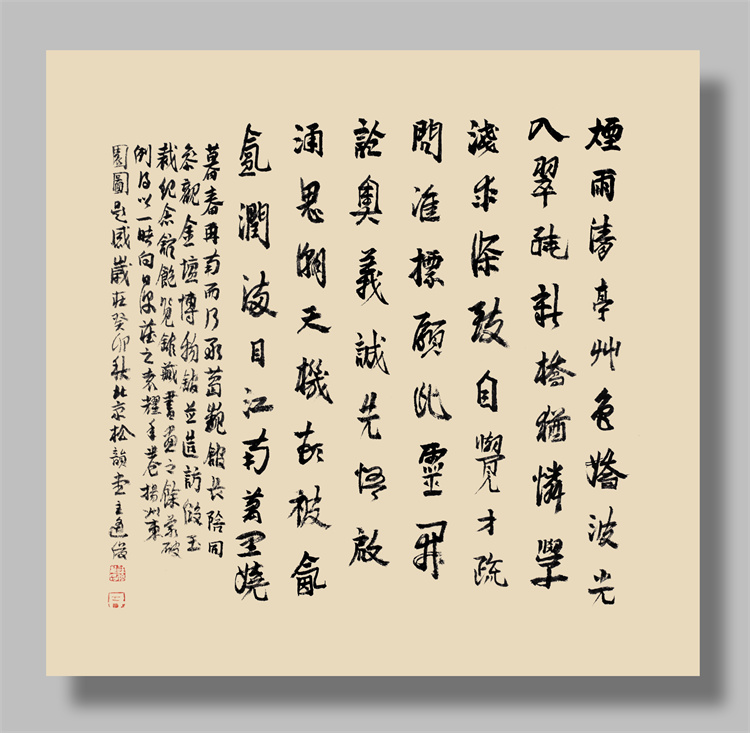 煙雨濤亭艸色嬌波光
入翠新橋猶憐學
淺求深致自覺才疏
問准標願此靈犀
詮奧義誠先悟啟
涌思潮天機被氤
氳潤滿目江南萬里嬈
暮春再南而乃承葛巍館長陪同
參觀金壇博物館並造訪段玉
裁紀念館飽覽館藏書畫之餘蒙破
例得以一睹向日深藏之袁耀手卷揚州東
園圖題感歲在癸卯秋北京松韻堂主逸俊